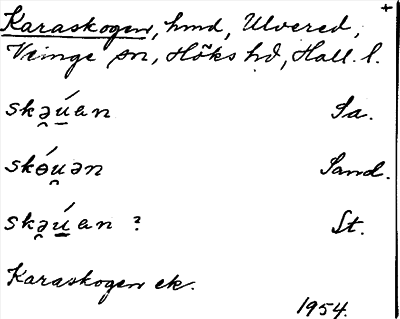 Karaskogen, hmd, Ulvered, +
Veinge sn, Höks hd, Hall. l.
skə̯ú̠an Sa.
skɵ́u̯ən Sand.
skə̯ú̠an ? St.
Karaskogen ek.
1954.